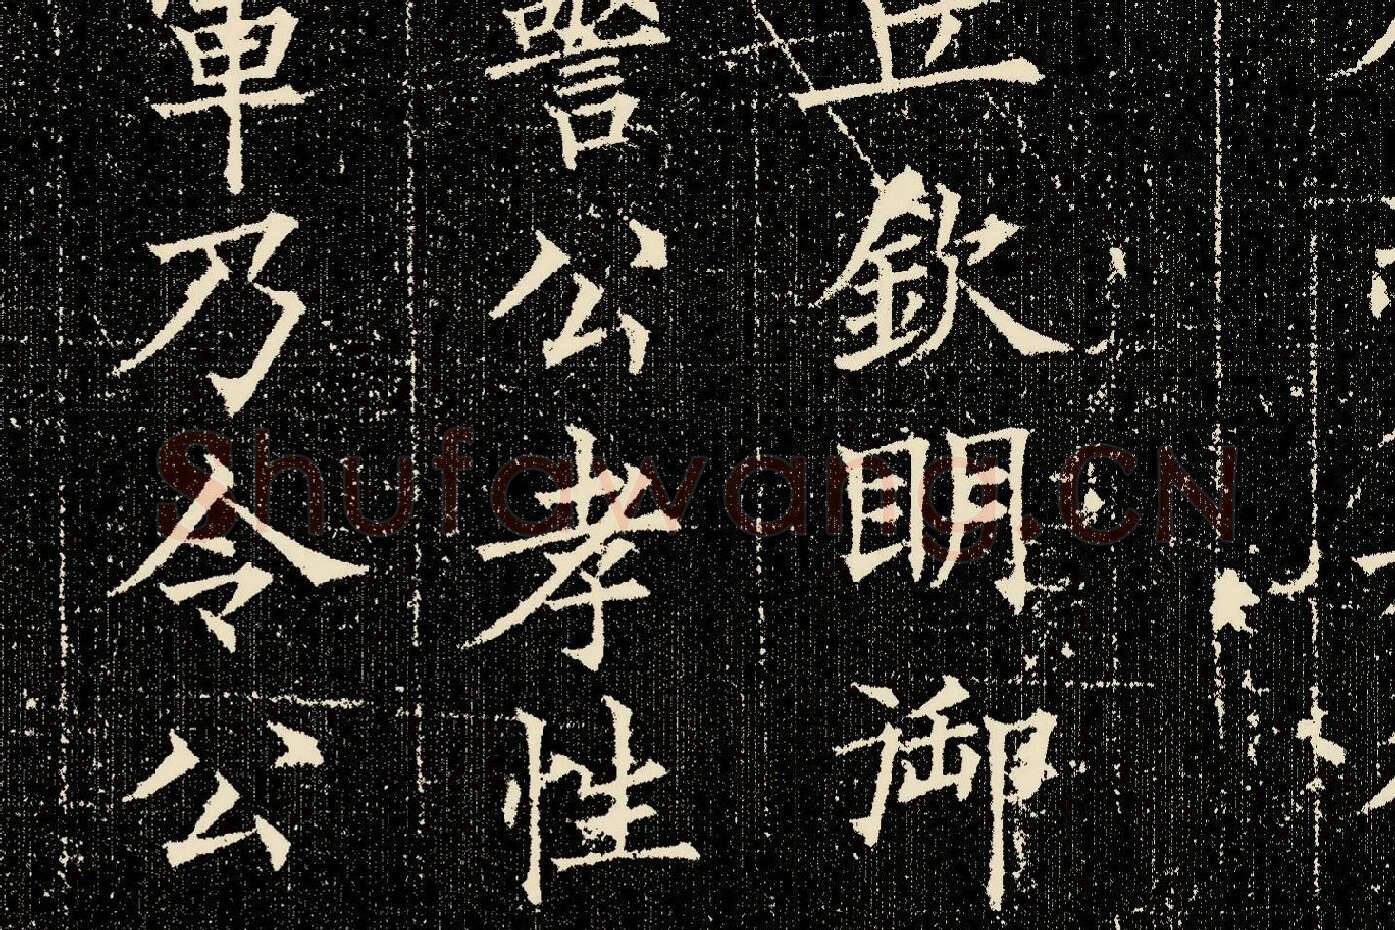 欽眀御
警公孝性
軍乃令公
Shufawang.CN